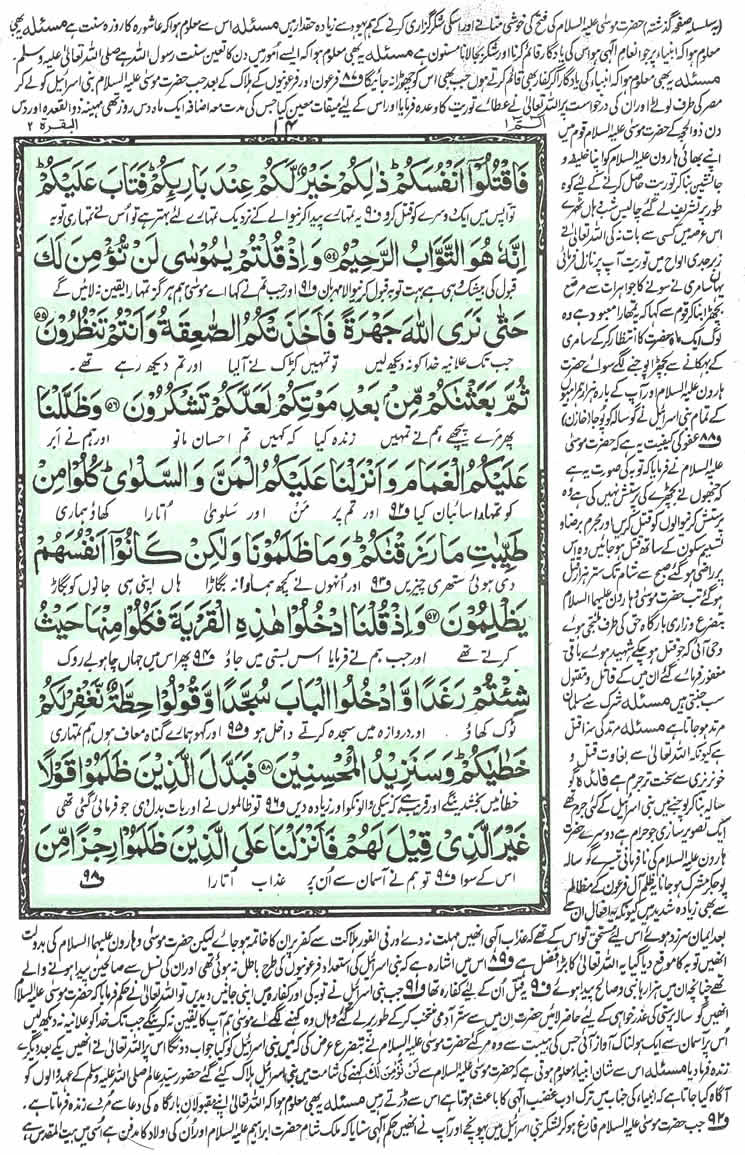 (بہ سلسلہ صفحہ گذشتہ) حضرت موسیٰ علیہ السلام کی فتح کی خوشی منانے اور اسکی شکر گزاری کرنے کے ہم یہود سے زیادہ حقدار ہیں مسئلہ اس سے معلوم ہوا کہ عاشورہ کا روزہ سنت ہے مسئلہ یہ بھی
معلوم ہوا کہ انبیاء پر جو انعام الٰہی ہو اس کی یادگار قائم کرنا اور شکر بجا لانا مسنون ہے مسئلہ یہ بھی معلوم ہوا کہ ایسے امور میں دن کا تعین سنت رسول اللہ ہے صلی اللہ تعالیٰ علیہ وسلم۔
مسئلہ یہ بھی معلوم ہوا کہ انبیاء کی یادگار اگر کفار بھی قائم کرتے ہوں جب بھی اس کو چھوڑا نہ جائیگا و۸۷ فرعون اور فرعونیوں کے ہلاک کے بعد جب حضرت موسیٰ علیہ السلام بنی اسرائیل کو لے کر
مصر کی طرف لوٹے اور ان کی درخواست پر اللہ تعالیٰ نے عطائے توریت کا وعدہ فرمایا اور اس کے لیے میقات معین کیا جس کی مدت معہ اضافہ ایک ماہ دس روز تھی مہینہ ذوالقعدہ اور دس
البقرۃ ۲
۱۴
الٓمّٓ ۱
فَاقْتُلُوْٓا اَنْفُسَكُمْ ذٰلِكُمْ خَيْرٌ لَّكُمْ عِنْدَ بَارِئِكُمْ فَتَابَ عَلَيْكُمْ
تو آپس میں ایک دوسرے کو قتل کرو و۹۰ یہ تمہارے پیدا کرنیوالے کے نزدیک تمہارے لئے بہتر ہے تو اُس نے تمہاری توبہ
اِنَّهٗ هُوَ التَّوَّابُ الرَّحِيْمُ ۵۴ وَاِذْ قُلْتُمْ يٰمُوْسٰى لَنْ نُّؤْمِنَ لَكَ
قبول کی بیشک وہی ہے بہت توبہ قبول کرنیوالا مہربان و۹۱ اور جب تم نے کہا اے موسیٰ ہم ہرگز تمہارا یقین نہ لائیں گے
حَتّٰى نَرَى اللّٰهَ جَهْرَةً فَاَخَذَتْكُمُ الصّٰعِقَةُ وَاَنْتُمْ تَنْظُرُوْنَ ۵۵
جب تک علانیہ خدا کو نہ دیکھ لیں تو تمہیں کڑک نے آلیا اور تم دیکھ رہے تھے۔
ثُمَّ بَعَثْنٰكُمْ مِّنْۢ بَعْدِ مَوْتِكُمْ لَعَلَّكُمْ تَشْكُرُوْنَ ۵۶ وَظَلَّلْنَا
پھر مرے پیچھے ہم نے تمہیں زندہ کیا کہ کہیں تم احسان مانو اور ہم نے اَبر
عَلَيْكُمُ الْغَمَامَ وَاَنْزَلْنَا عَلَيْكُمُ الْمَنَّ وَالسَّلْوٰى كُلُوْا مِنْ
کو تمہارا سائبان کیا و۹۲ اور تم پر مَنّ اور سلویٰ اُتارا کھاؤ ہماری
طَيِّبٰتِ مَا رَزَقْنٰكُمْ وَمَا ظَلَمُوْنَا وَلٰكِنْ كَانُوْٓا اَنْفُسَهُمْ
دی ہوئی ستھری چیزیں و۹۳ اور انھوں نے کچھ ہمارا نہ بگاڑا ہاں اپنی ہی جانوں کو بگاڑ
يَظْلِمُوْنَ ۵۷ وَاِذْ قُلْنَا ادْخُلُوْا هٰذِهِ الْقَرْيَةَ فَكُلُوْا مِنْهَا حَيْثُ
کرتے تھے اور جب ہم نے فرمایا اس بستی میں جاؤ و۹۴ پھر اس میں جہاں چاہو بے روک
شِئْتُمْ رَغَدًا وَّادْخُلُوا الْبَابَ سُجَّدًا وَّقُوْلُوْا حِطَّةٌ نَّغْفِرْلَكُمْ
ٹوک کھاؤ اور دروازہ میں سجدہ کرتے داخل ہو و۹۵ اور کہو ہمارے گناہ معاف ہوں ہم تمہاری
خَطٰيٰكُمْ وَسَنَزِيْدُ الْمُحْسِنِيْنَ ۵۸ فَبَدَّلَ الَّذِيْنَ ظَلَمُوْا قَوْلًا
خطائیں بخش دینگے اور قریب ہے کہ نیکی والوں کو اور زیادہ دیں و۹۶ تو ظالموں نے اور بات بدل دی جو فرمائی گئی تھی
غَيْرَ الَّذِيْ قِيْلَ لَهُمْ فَاَنْزَلْنَا عَلَى الَّذِيْنَ ظَلَمُوْا رِجْزًا مِّنَ
اس کے سوا و۹۷ تو ہم نے آسمان سے اُن پر عذاب اُتارا و۹۸
دن ذوالحجہ کے حضرت موسیٰ علیہ السلام قوم میں
اپنے بھائی ہارون علیہ السلام کو اپنا خلیفہ و
جانشین بنا کر توریت حاصل کرنے کے لیے کوہ
طور پر تشریف لے گئے چالیس شب وہاں ٹھہرے
اس عرصہ میں کسی سے بات نہ کی اللہ تعالیٰ نے
زبرجدی الواح میں توریت آپ پر نازل فرمائی
یہاں سامری نے سونے کا جواہرات سے مرصع
بچھڑا بنا کر قوم سے کہا کہ یہ تمہارا معبود ہے وہ
لوگ ایک ماہ حضرت کا انتظار کر کے سامری
کے بہکانے سے بچھڑا پوجنے لگے سوائے حضرت
ہارون علیہ السلام اور آپ کے بارہ ہزار ہمراہیوں
کے تمام بنی اسرائیل نے گوسالہ کو پوجا (خازن)
و۸۸ عفو کی کیفیت یہ ہے کہ حضرت موسیٰ
علیہ السلام نے فرمایا کہ توبہ کی صورت یہ ہے
کہ جنھوں نے بچھڑے کی پرستش نہیں کی ہے وہ
پرستش کرنیوالوں کو قتل کریں اور مجرم برضا و
تسلیم سکون کے ساتھ قتل ہو جائیں وہ اس
پر راضی ہو گئے صبح سے شام تک ستر ہزار قتل
ہو گئے تب حضرت موسیٰ و ہارون علیہما السلام
بتضرع و زاری بارگاہ حق کی طرف ملتجی ہوئے
وحی آئی کہ جو قتل ہو چکے شہید ہوئے باقی
مغفور فرمائے گئے ان میں کے قاتل و مقتول
سب جنتی ہیں مسئلہ شرک سے مسلمان
مرتد ہو جاتا ہے مسئلہ مرتد کی سزا قتل
ہے کیونکہ اللہ تعالیٰ سے بغاوت قتل و
خونریزی سے سخت تر جرم ہے فائدہ گو
سالہ بنا کر پوجنے میں بنی اسرائیل کے کئی جرم تھے
ایک تصویر سازی جو حرام ہے دوسرے حضرت
ہارون علیہ السلام کی نافرمانی تیسرے گو سالہ
پوج کر مشرک ہو جانا یہ ظلم آل فرعون کے مظالم
سے بھی زیادہ شدید ہیں کیونکہ یہ افعال ان سے
بعد ایمان سرزد ہوئے اس لیے مستحق تو اس کے تھے کہ عذاب الٰہی انھیں مہلت نہ دے اور فی الفور ہلاکت سے کفر پر ان کا خاتمہ ہو جائے لیکن حضرت موسیٰ و ہارون علیہما السلام کی بدولت
انھیں توبہ کا موقع دیا گیا یہ اللہ تعالیٰ کا بڑا فضل ہے و۸۹ اس میں اشارہ ہے کہ بنی اسرائیل کی استعداد فرعونیوں کی طرح باطل نہ ہوئی تھی اور ان کی نسل سے صالحین پیدا ہونے والے
تھے چنانچہ ان میں ہزارہا نبی و صالح پیدا ہوئے و۹۰ یہ قتل اُن کے لئے کفارہ تھا و۹۱ جب بنی اسرائیل نے توبہ کی اور کفارہ میں اپنی جانیں دیدیں تو اللہ تعالیٰ نے حکم فرمایا کہ حضرت موسیٰ علیہ السلام
انھیں گو سالہ پرستی کی عذر خواہی کے لیے حاضر لائیں حضرت ان میں سے ستر آدمی منتخب کر کے طور پر لے گئے وہاں وہ کہنے لگے اے موسیٰ ہم آپ کا یقین نہ کرینگے جب تک خدا کو علانیہ نہ دیکھ لیں
اس پر آسمان سے ایک ہولناک آواز آئی جس کی ہیبت سے وہ مر گئے حضرت موسیٰ علیہ السلام نے بتضرع عرض کی کہ میں بنی اسرائیل کو کیا جواب دونگا اس پر اللہ تعالیٰ نے انھیں یکے بعد دیگرے
زندہ فرمادیا مسئلہ اس سے شان انبیاء معلوم ہوتی ہے کہ حضرت موسیٰ علیہ السلام سے لَنْ نُّؤْمِنَ لَكَ کہنے کی شامت میں بنی اسرائیل ہلاک کیے گئے حضور سید عالم صلی اللہ علیہ وسلم کے عہد والوں کو
آگاہ کیا جاتا ہے کہ انبیاء کی جناب میں ترک ادب غضب الٰہی کا باعث ہوتا ہے اس سے ڈرتے رہیں مسئلہ یہ بھی معلوم ہوا کہ اللہ تعالیٰ اپنے مقبولان بارگاہ کی دعا سے مُردے زندہ فرماتا ہے۔
و۹۲ جب حضرت موسیٰ علیہ السلام فارغ ہو کر لشکر بنی اسرائیل میں پہونچے اور آپ نے انھیں حکم الٰہی سنایا کہ ملک شام حضرت ابراہیم علیہ السلام اور اُن کی اولاد کا مدفن ہے اسی میں بیت المقدس ہے